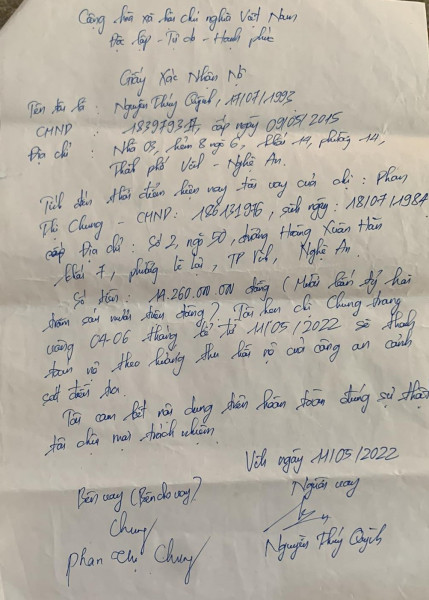 Cộng hòa xã hội chủ nghĩa Việt Nam
Độc lập - Tự do - Hạnh phúc
Giấy Xác Nhận Nợ
Tên tôi là : Nguyễn Thúy Quỳnh, 17/07/1993
CMND : cấp ngày 09/05/2015
Địa chỉ : Nhà 03, hẻm 8 ngõ 6, khối 19, phường
Thành phố Vinh - Nghệ An.
Tính đến thời điểm hiện nay tôi vay của chị : Phan
Thị Chung - CMND : 186131916, sinh ngày : 18/07/1984
cấp Địa chỉ : Số 2, ngõ 50, đường Hoàng Xuân Hãn
khối 7, phường Lê Lợi, TP Vinh, Nghệ An.
Số tiền : 14.260.000.000 đồng (Mười bốn tỷ hai
trăm sáu mươi triệu đồng). Tôi hẹn chị Chung trong
vòng 04-06 tháng kể từ 11/05/2022 sẽ thanh
toán nợ theo hướng thu hồi nợ của công an cảnh
sát điều tra.
Tôi cam kết nội dung trên hoàn toàn đúng sự thật
tôi chịu mọi trách nhiệm.
Vinh ngày 11/05/2022
Bên vay (Bên cho vay)
Người vay
Chung
Phan Thị Chung
Nguyễn Thúy Quỳnh